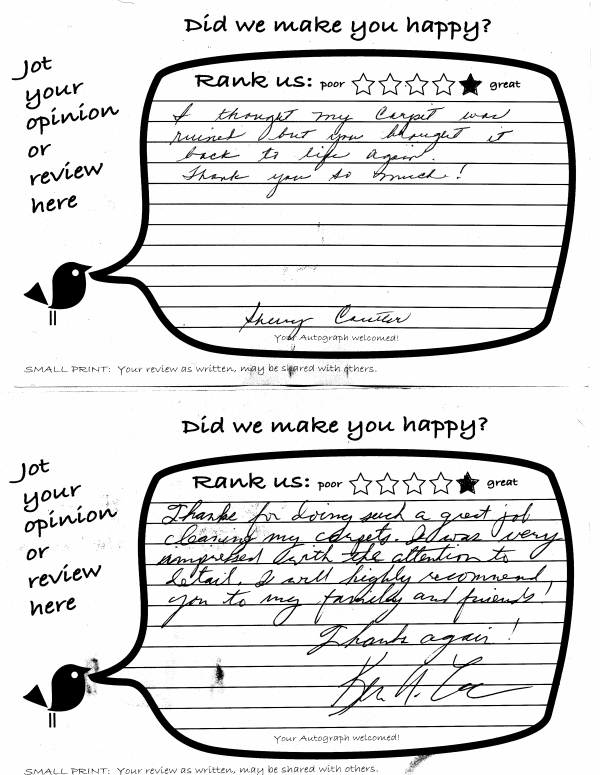 Did we make you happy?
Jot
your
opinion
or
review
here
Rank us: poor great
I thought my Carpit was
ruined but you brought it
back to life again.
Thank you so much!
Sherry
Your Autograph welcomed!
SMALL PRINT: Your review as written, may be shared with others.
Did we make you happy?
Jot
your
opinion
or
review
here
Rank us: poor great
Thanks for doing such a great job
cleaning my carpets. I was very
impressed with the attention to
detail. I will highly recommend
you to my family and friends!
Thanks again!
Your Autograph welcomed!
SMALL PRINT: Your review as written, may be shared with others.